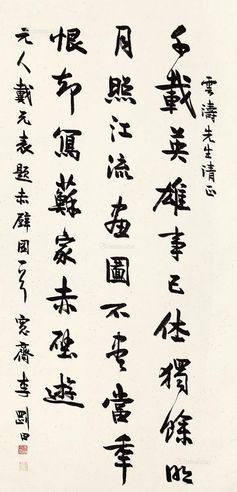 雲濤先生清正
千載英雄事已休獨餘明
月照江流畫圖不盡當年
恨却寫蘇家赤壁遊
元人戴元表題赤壁圖一首 窓齋李剛田